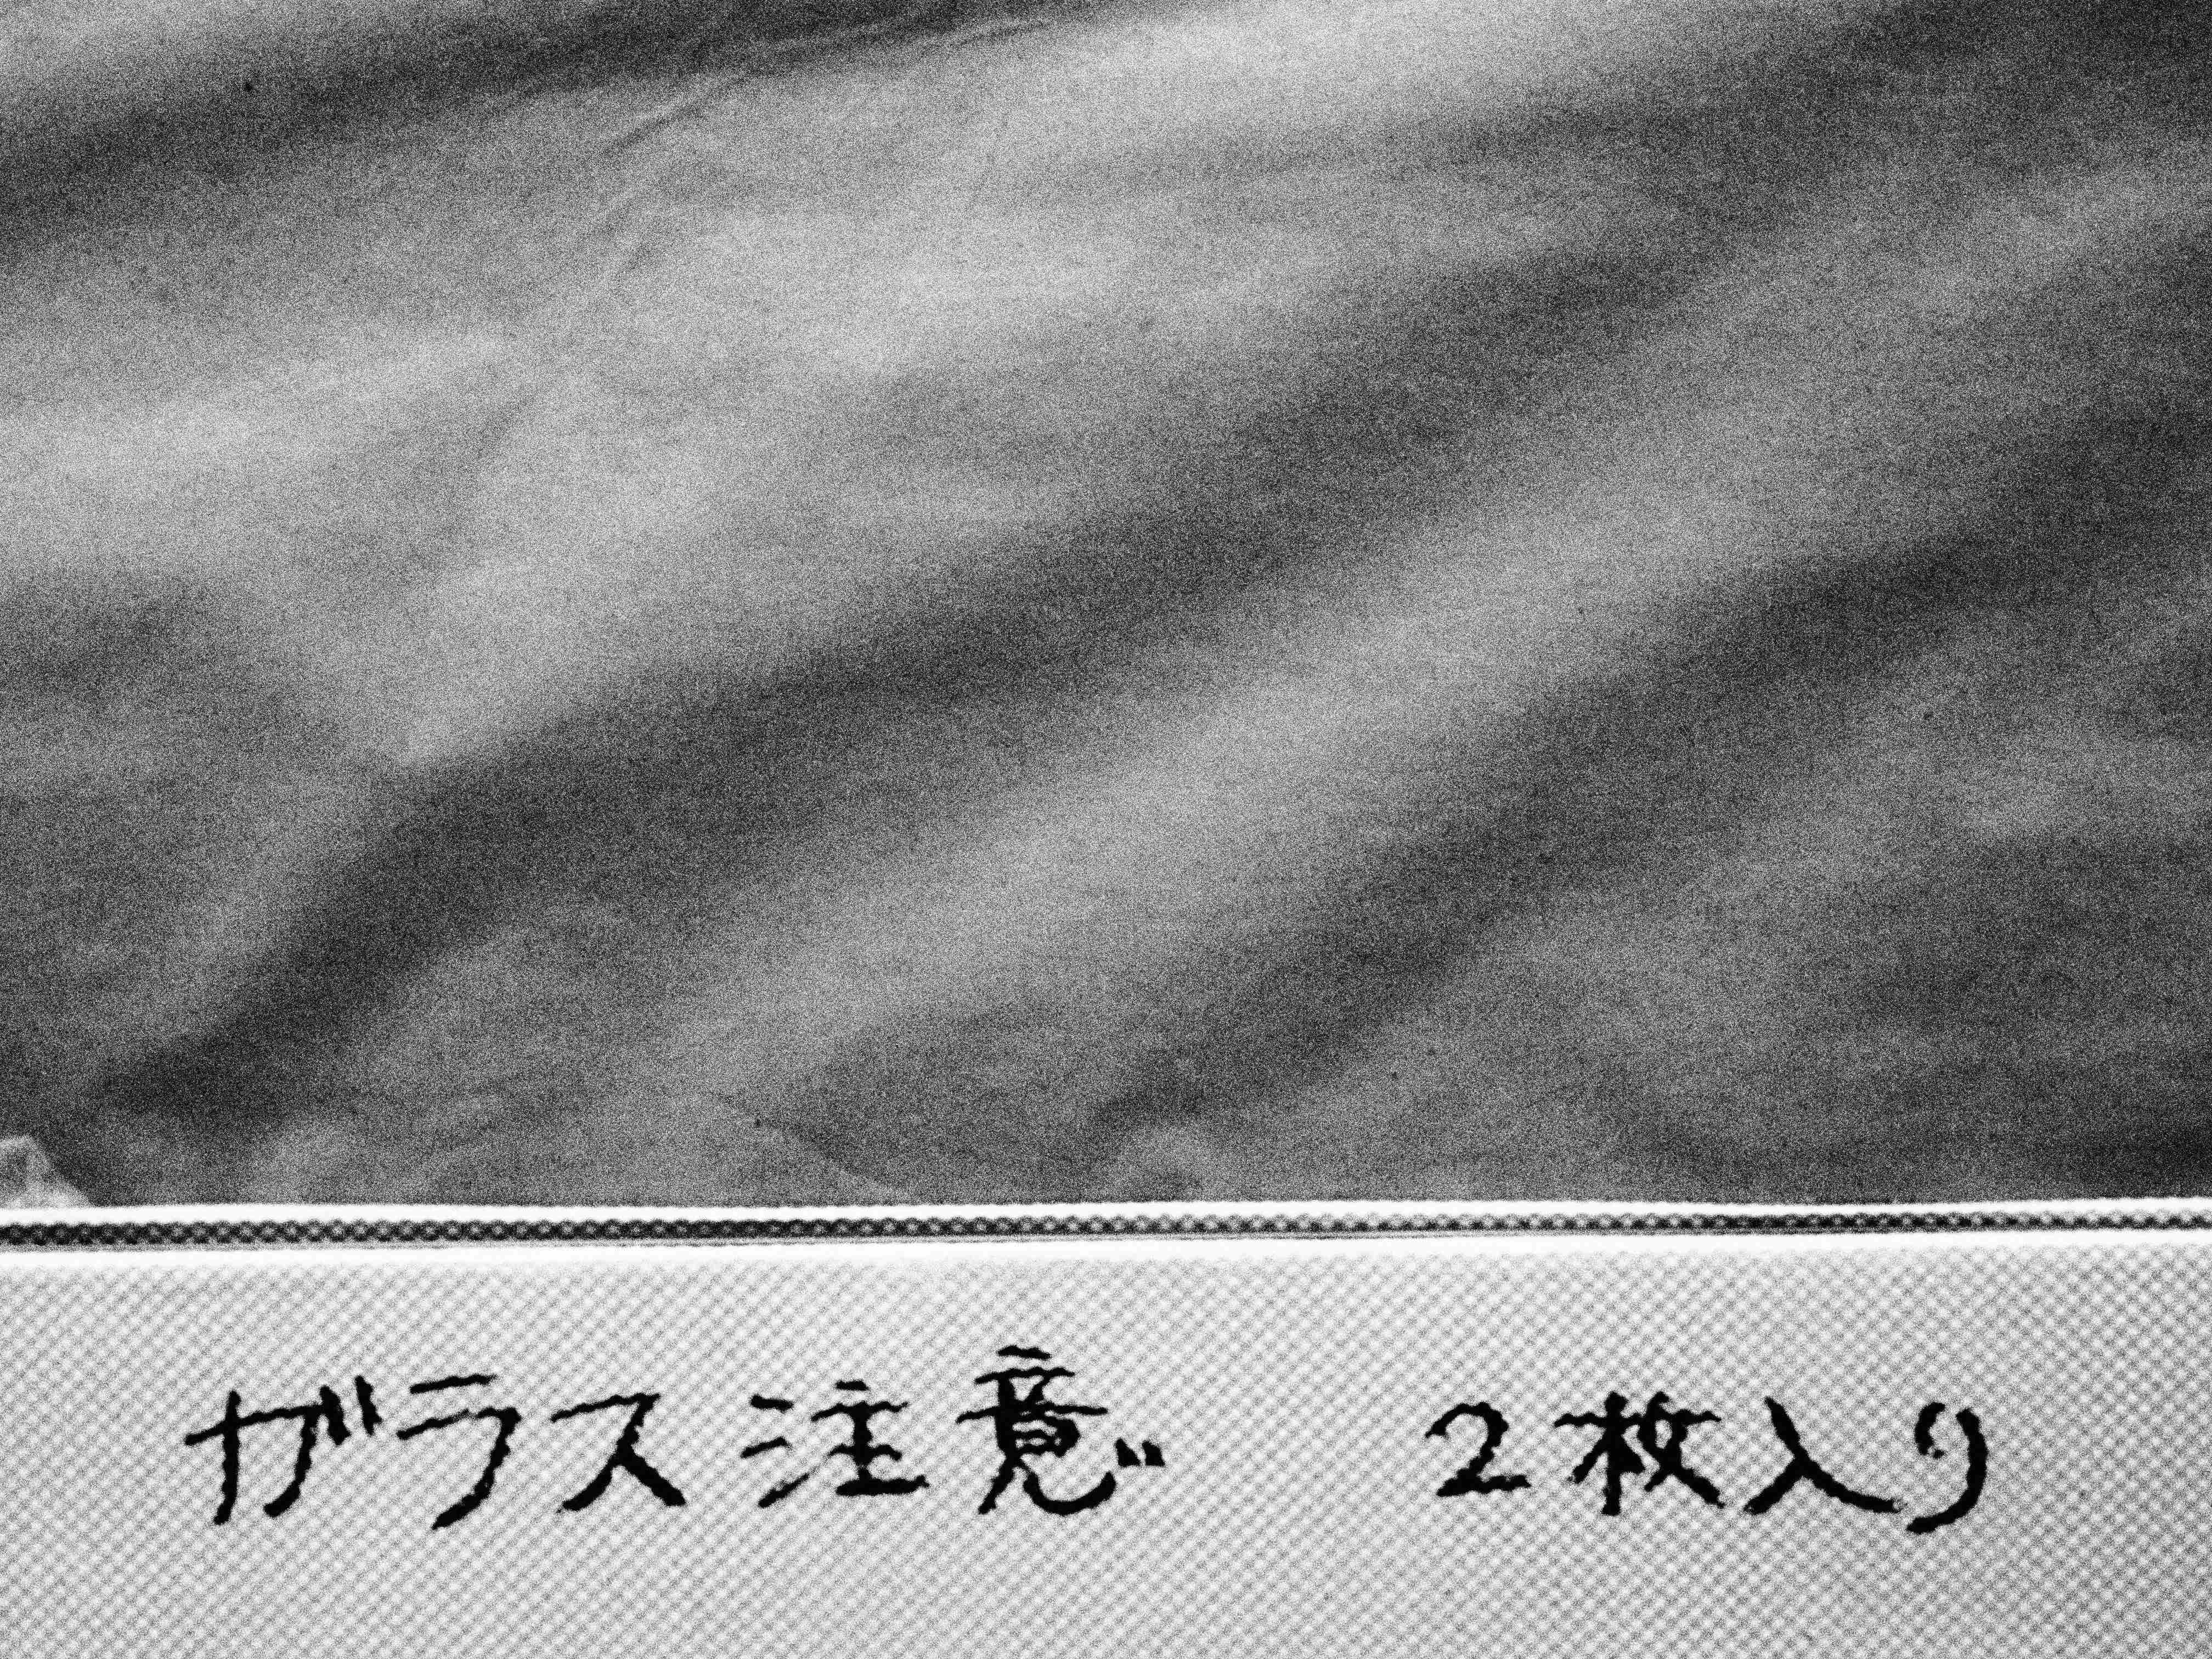 ガラス注意 2枚入り